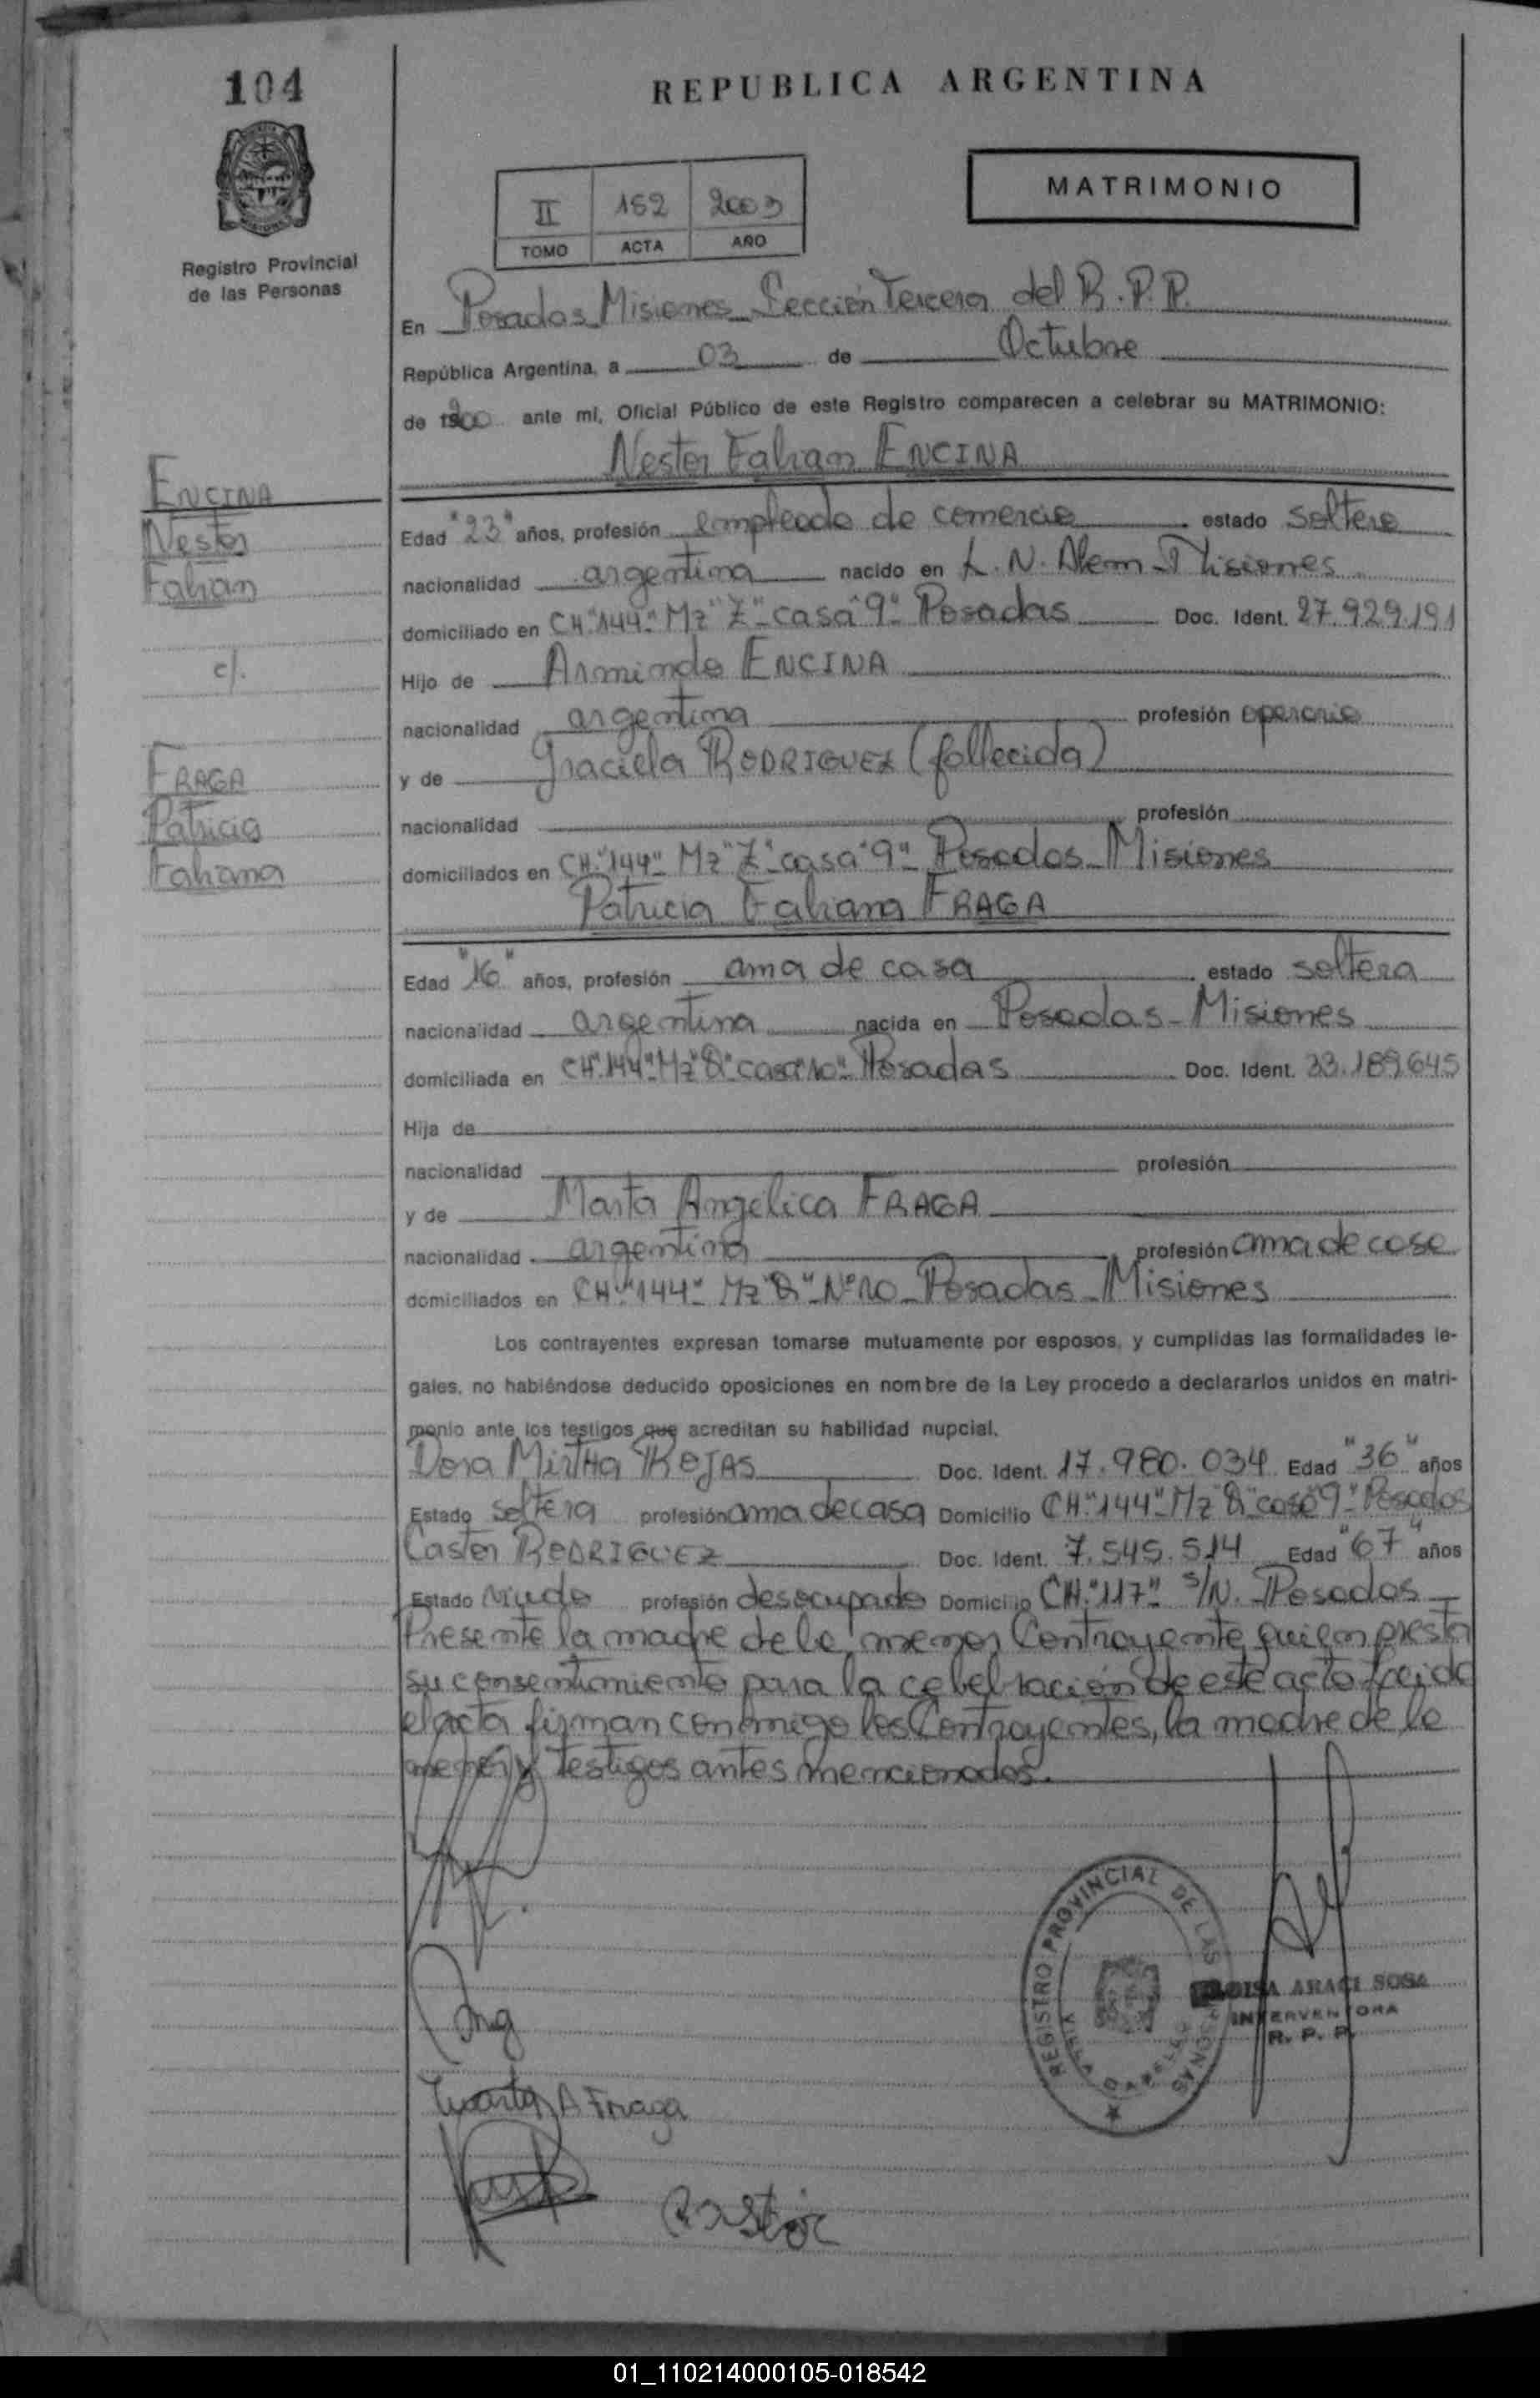 104
REPUBLICA ARGENTINA
MATRIMONIO
II 152 2003
TOMO ACTA AÑO
Registro Provincial
de las Personas
En Posadas Misiones Sección Tercera del R.P.P.
República Argentina, a 03 de Octubre
de ante mí, Oficial Público de este Registro comparecen a celebrar su MATRIMONIO:
Nestor Fabian ENCINA
ENCINA
Nestor
Fabian
c/.
FRAGA
Patricia
Fabiana
Edad "23" años, profesión empleado de comercio estado soltero
nacionalidad argentina nacido en L. N. Alem - Misiones
domiciliado en CH."144"- Mz "Z"- casa "9"- Posadas Doc. Ident. 27.929.191
Hijo de Armindo ENCINA
nacionalidad argentina profesión operario
y de Graciela RODRIGUEZ (fallecida)
nacionalidad profesión
domiciliados en CH."144"- Mz "Z"- casa "9"- Posadas - Misiones
Patricia Fabiana FRAGA
Edad "16" años, profesión ama de casa estado soltera
nacionalidad argentina nacida en Posadas - Misiones
domiciliada en CH"144"- Mz casa"10"- Posadas Doc. Ident. 33.189.645
Hija de
nacionalidad profesión
y de Marta Angelica FRAGA
nacionalidad argentina profesión ama de casa
domiciliados en CH."144"- Mz Nº 10 - Posadas - Misiones
Los contrayentes expresan tomarse mutuamente por esposos, y cumplidas las formalidades le-
gales, no habiéndose deducido oposiciones en nombre de la Ley procedo a declararlos unidos en matri-
monio ante los testigos que acreditan su habilidad nupcial.
Dora Mirtha ROJAS Doc. Ident. 17.980.034 Edad "36" años
Estado soltera profesión ama de casa Domicilio CH."144"- Mz casa "9"- Posadas
Castor RODRIGUEZ Doc. Ident. 7.545.514 Edad "67" años
Estado viudo profesión desocupado Domicilio CH."117"- S/N. - Posadas
Presente la madre de la menor Contrayente, quien presta
su consentimiento para la cebelración de este acto. Leida
el acta firman conmigo los Contrayentes, la madre de la
menor y testigos antes mencionados.
REGISTRO PROVINCIAL DE LAS PERSONAS
ARACI SOSA
INTERVENTORA
R. P. P.
Marta A Fraga
Castor
01_110214000105-018542